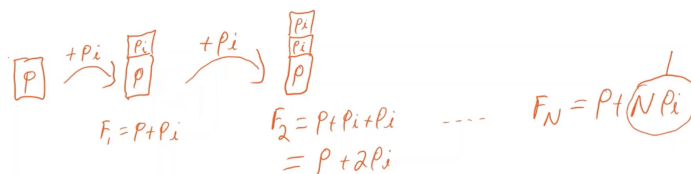 Pi
Pi
+Pi
Pi
+Pi
Pi
P
P
P
F₁ = P+Pi
F₂ = P+Pi+Pi
= P+2Pi
.....
F_N = P+NPi